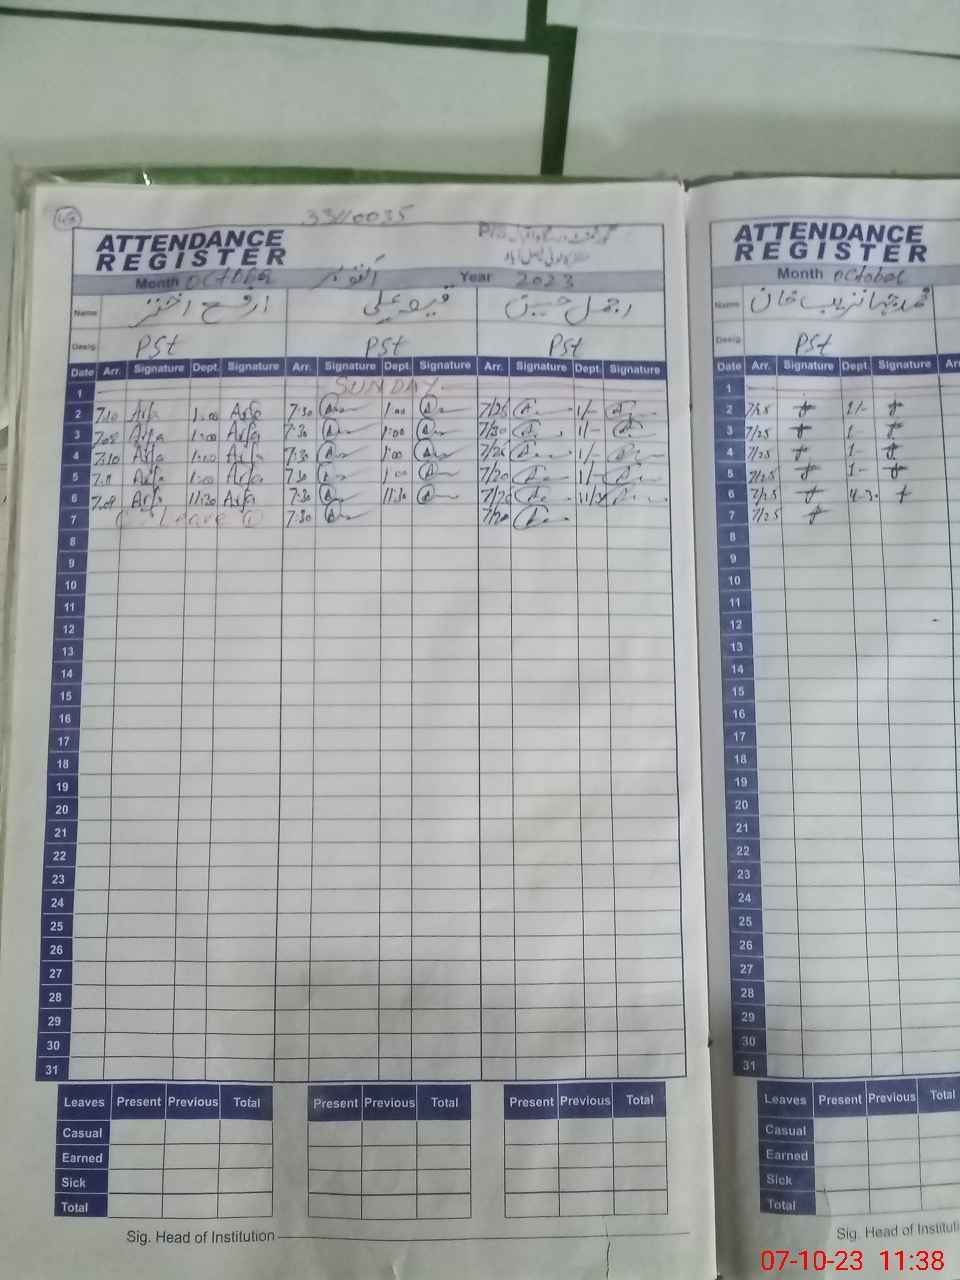 48
33110035
ATTENDANCE
REGISTER
Month October اکتوبر Year 2023
Name ارفع اختر قیصر علی اجمل حسین
Desig PSt PSt PSt
Date Arr. Signature Dept. Signature Arr. Signature Dept. Signature Arr. Signature Dept. Signature
1 SUNDAY
2 7:10 Arfa 1:00 Arfa 7:30 1:00 7/25 1/-
3 7:08 Arfa 1:00 Arfa 7:30 1:00 7/30 1/-
4 7:10 Arfa 1:00 Arfa 7:30 1:00 7/25 1/-
5 Arfa 1:00 Arfa 7:30 1:00 7/20 1/-
6 7:08 Arfa 11:30 Arfa 7:30 11:30 7/20 11/30
7 Leave 1 7:30 7/20
8
9
10
11
12
13
14
15
16
17
18
19
20
21
22
23
24
25
26
27
28
29
30
31
Leaves Present Previous Total Present Previous Total Present Previous Total
Casual
Earned
Sick
Total
Sig. Head of Institution
ATTENDANCE
REGISTER
Month October
Name محمد جہانزیب خان
Desig PSt
Date Arr. Signature Dept. Signature
1
2 7/25 1/-
3 7/25 1-
4 7/25 1-
5 7/25 1-
6 7/25
7 7/25
8
9
10
11
12
13
14
15
16
17
18
19
20
21
22
23
24
25
26
27
28
29
30
31
Leaves Present Previous Total
Casual
Earned
Sick
Total
Sig. Head of Instituti
07-10-23 11:38